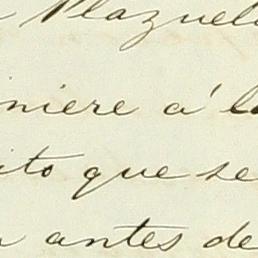 Plazuel
niere á l
ito que se
antes de